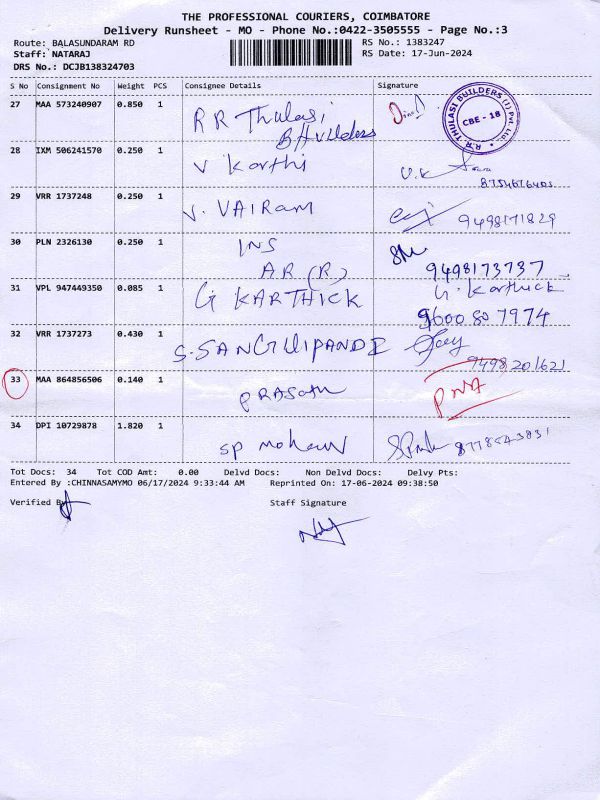 THE PROFESSIONAL COURIERS, COIMBATORE
Delivery Runsheet - MO - Phone No.:0422-3505555 - Page No.:3
Route: BALASUNDARAM RD RS No.: 1383247
Staff: NATARAJ RS Date: 17-Jun-2024
DRS No.: DCJB138324703
S No Consignment No Weight PCS Consignee Details Signature
27 MAA 573240907 0.850 1 RR Thulasi
Builders
R.R. THULASI BUILDERS (I) Pvt. Ltd. CBE - 18
28 IXM 506241570 0.250 1 V Karthi V.K
29 VRR 1737248 0.250 1 V. VAIRam 9498171829
30 PLN 2326130 0.250 1 INS
AR (R) 9498173737
31 VPL 947449350 0.085 1 G KARTHICK G. Karthick
9600 80 7974
32 VRR 1737273 0.430 1 S. SANGILIPANDI
9498 201621
33 MAA 864856506 0.140 1 PRASATH PNA
34 DPI 10729878 1.820 1 SP mohan
Tot Docs: 34 Tot COD Amt: 0.00 Delvd Docs: Non Delvd Docs: Delvy Pts:
Entered By :CHINNASAMYMO 06/17/2024 9:33:44 AM Reprinted On: 17-06-2024 09:38:50
Verified By Staff Signature